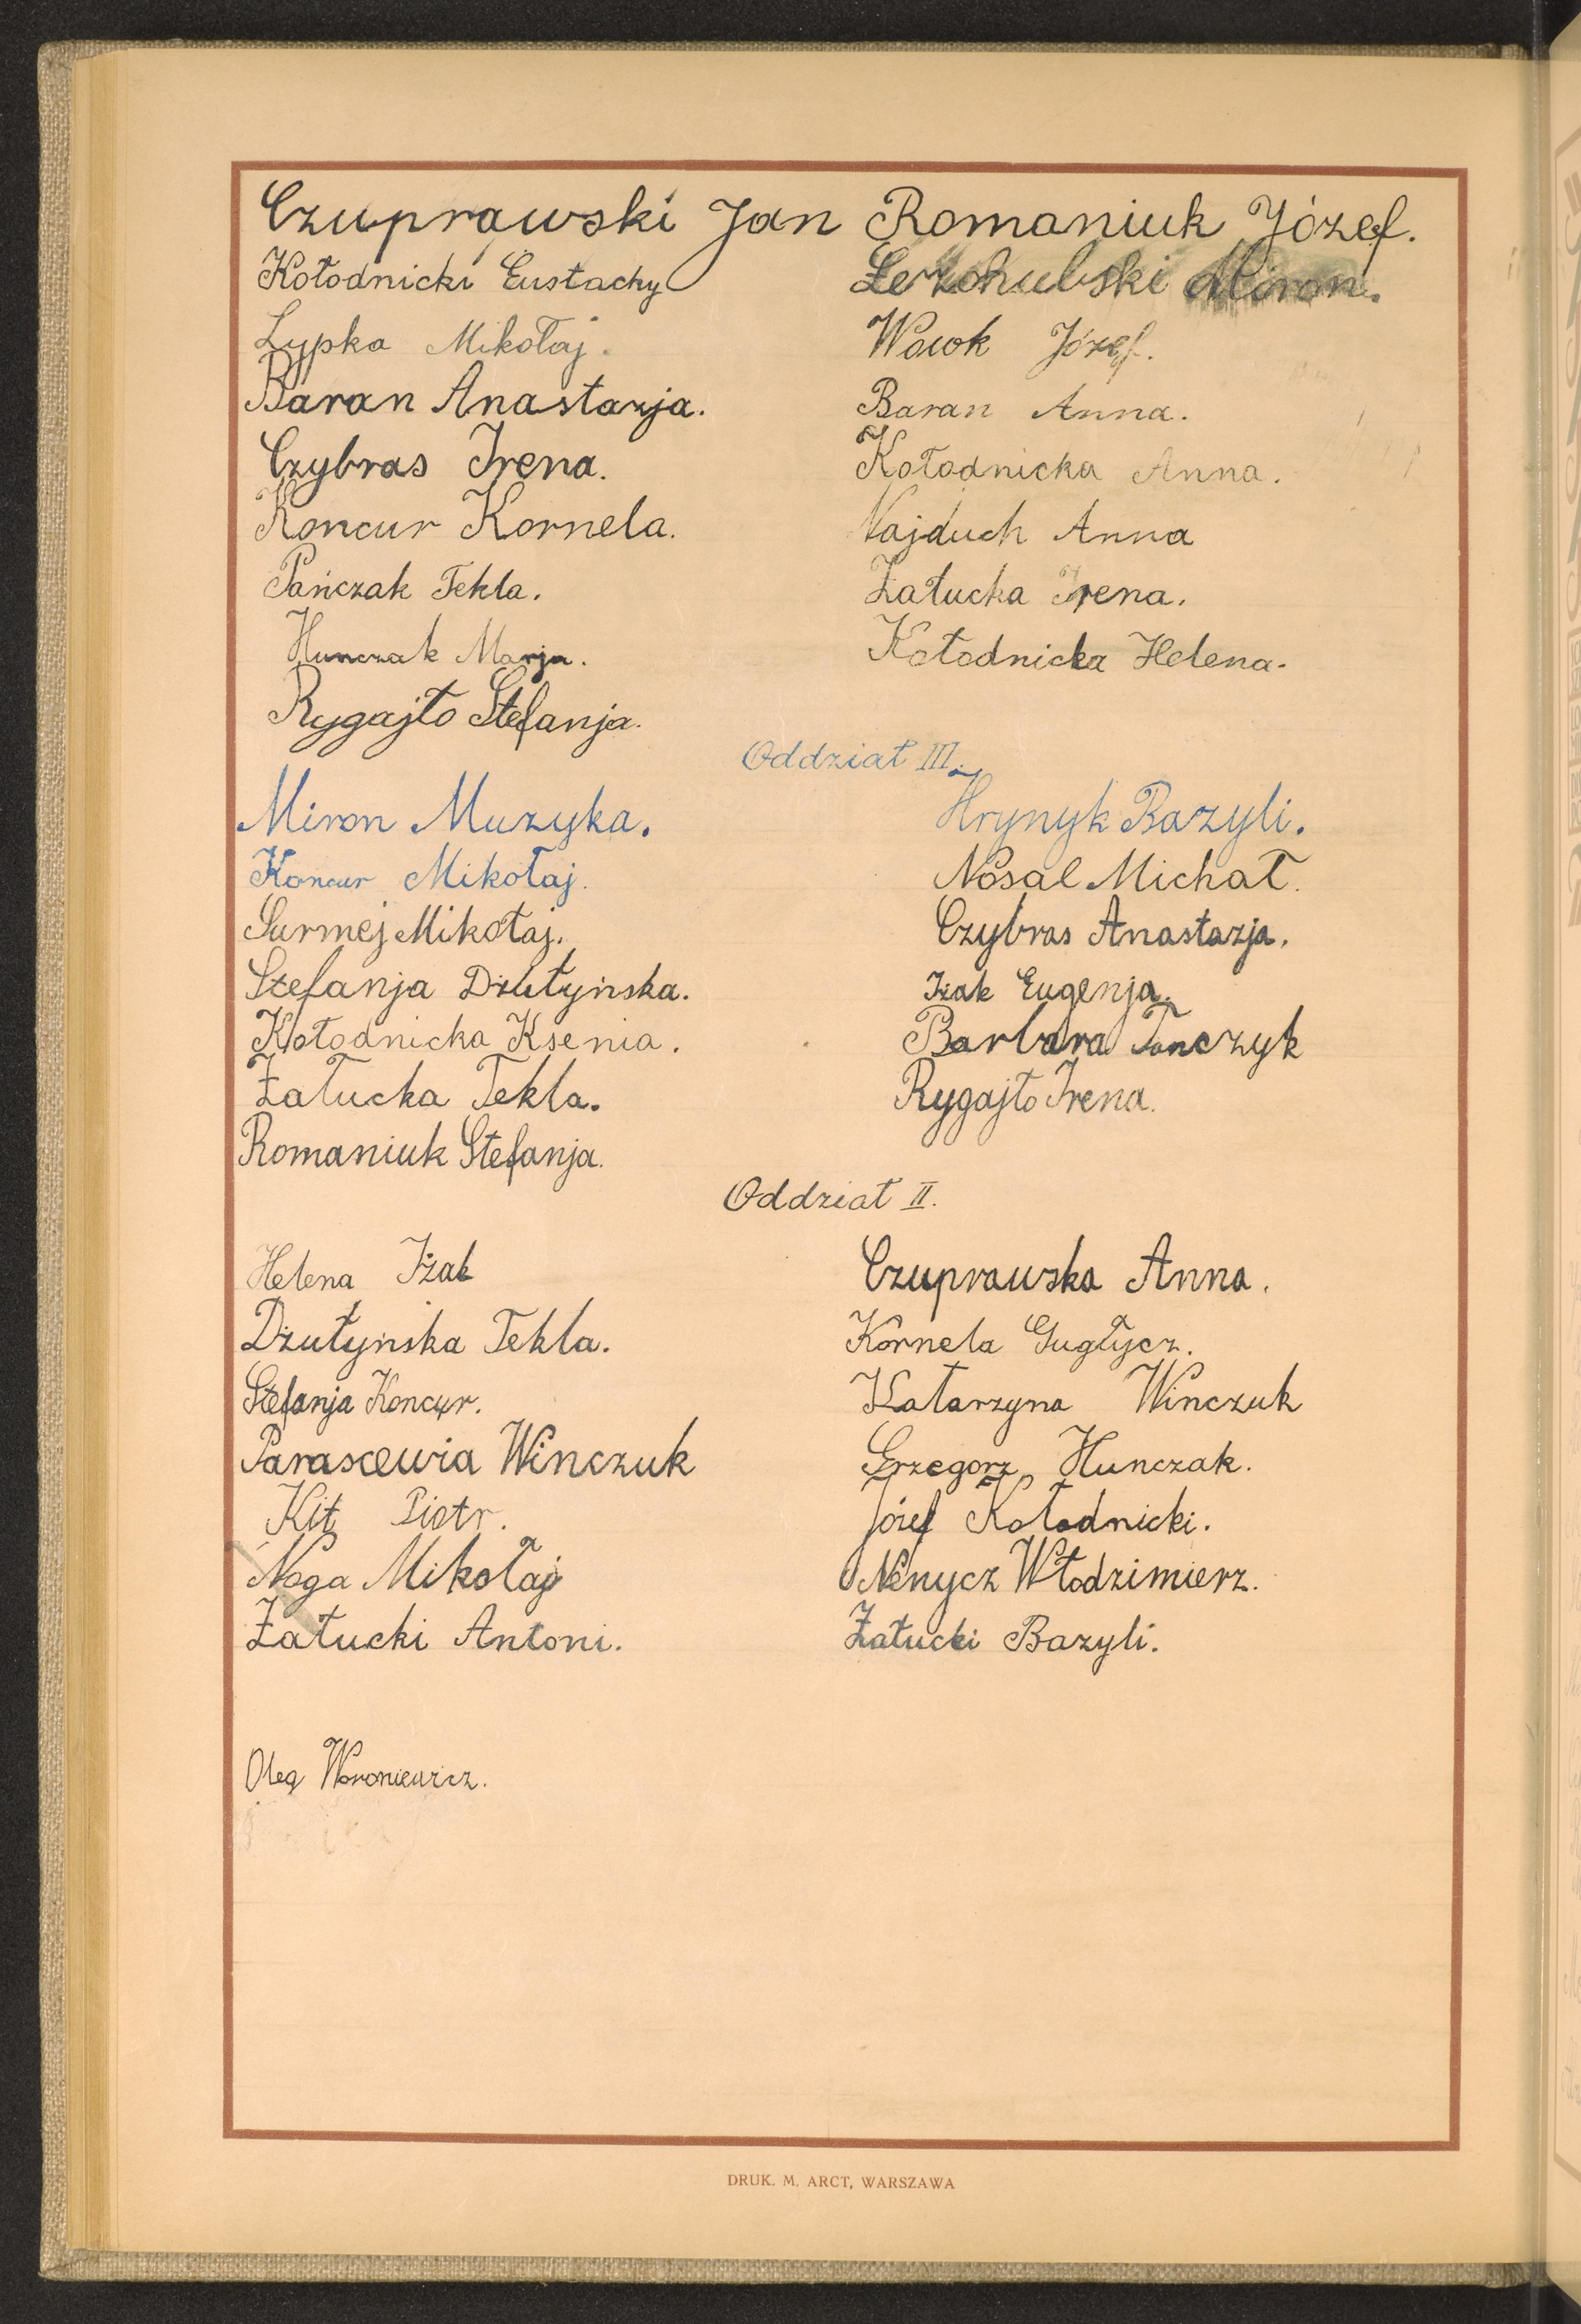 Czuprawski Jan
Romaniuk Józef.
Kołodnicki Eustachy
Miron.
Łypka Mikołaj.
Wowk Józef.
Baran Anastazja.
Baran Anna.
Czybras Irena.
Kołodnicka Anna.
Koncur Kornela.
Najduch Anna
Pańczak Tekla.
Załucka Irena.
Hunczak Marja.
Kołodnicka Helena.
Rygajło Stefanja.
Oddział III.
Miron Muzyka.
Hrynyk Bazyli.
Koncur Mikołaj.
Nosal Michał.
Surmej Mikołaj.
Czybras Anastazja.
Stefanja Dżułyńska.
Iżak Eugenja.
Kołodnicka Ksenia.
Barbara Tanczyk
Załucka Tekla.
Rygajło Irena.
Romaniuk Stefanja.
Oddział II.
Helena Iżak
Czuprawska Anna.
Dżułyńska Tekla.
Kornela Gugłycz.
Stefanja Koncur.
Katarzyna Winczuk
Parascewia Winczuk
Grzegorz Hunczak.
Kit Piotr.
Józef Kołodnicki.
Noga Mikołaj
Nenycz Włodzimierz.
Załucki Antoni.
Załucki Bazyli.
Oleg Woroniewicz.
DRUK. M. ARCT, WARSZAWA